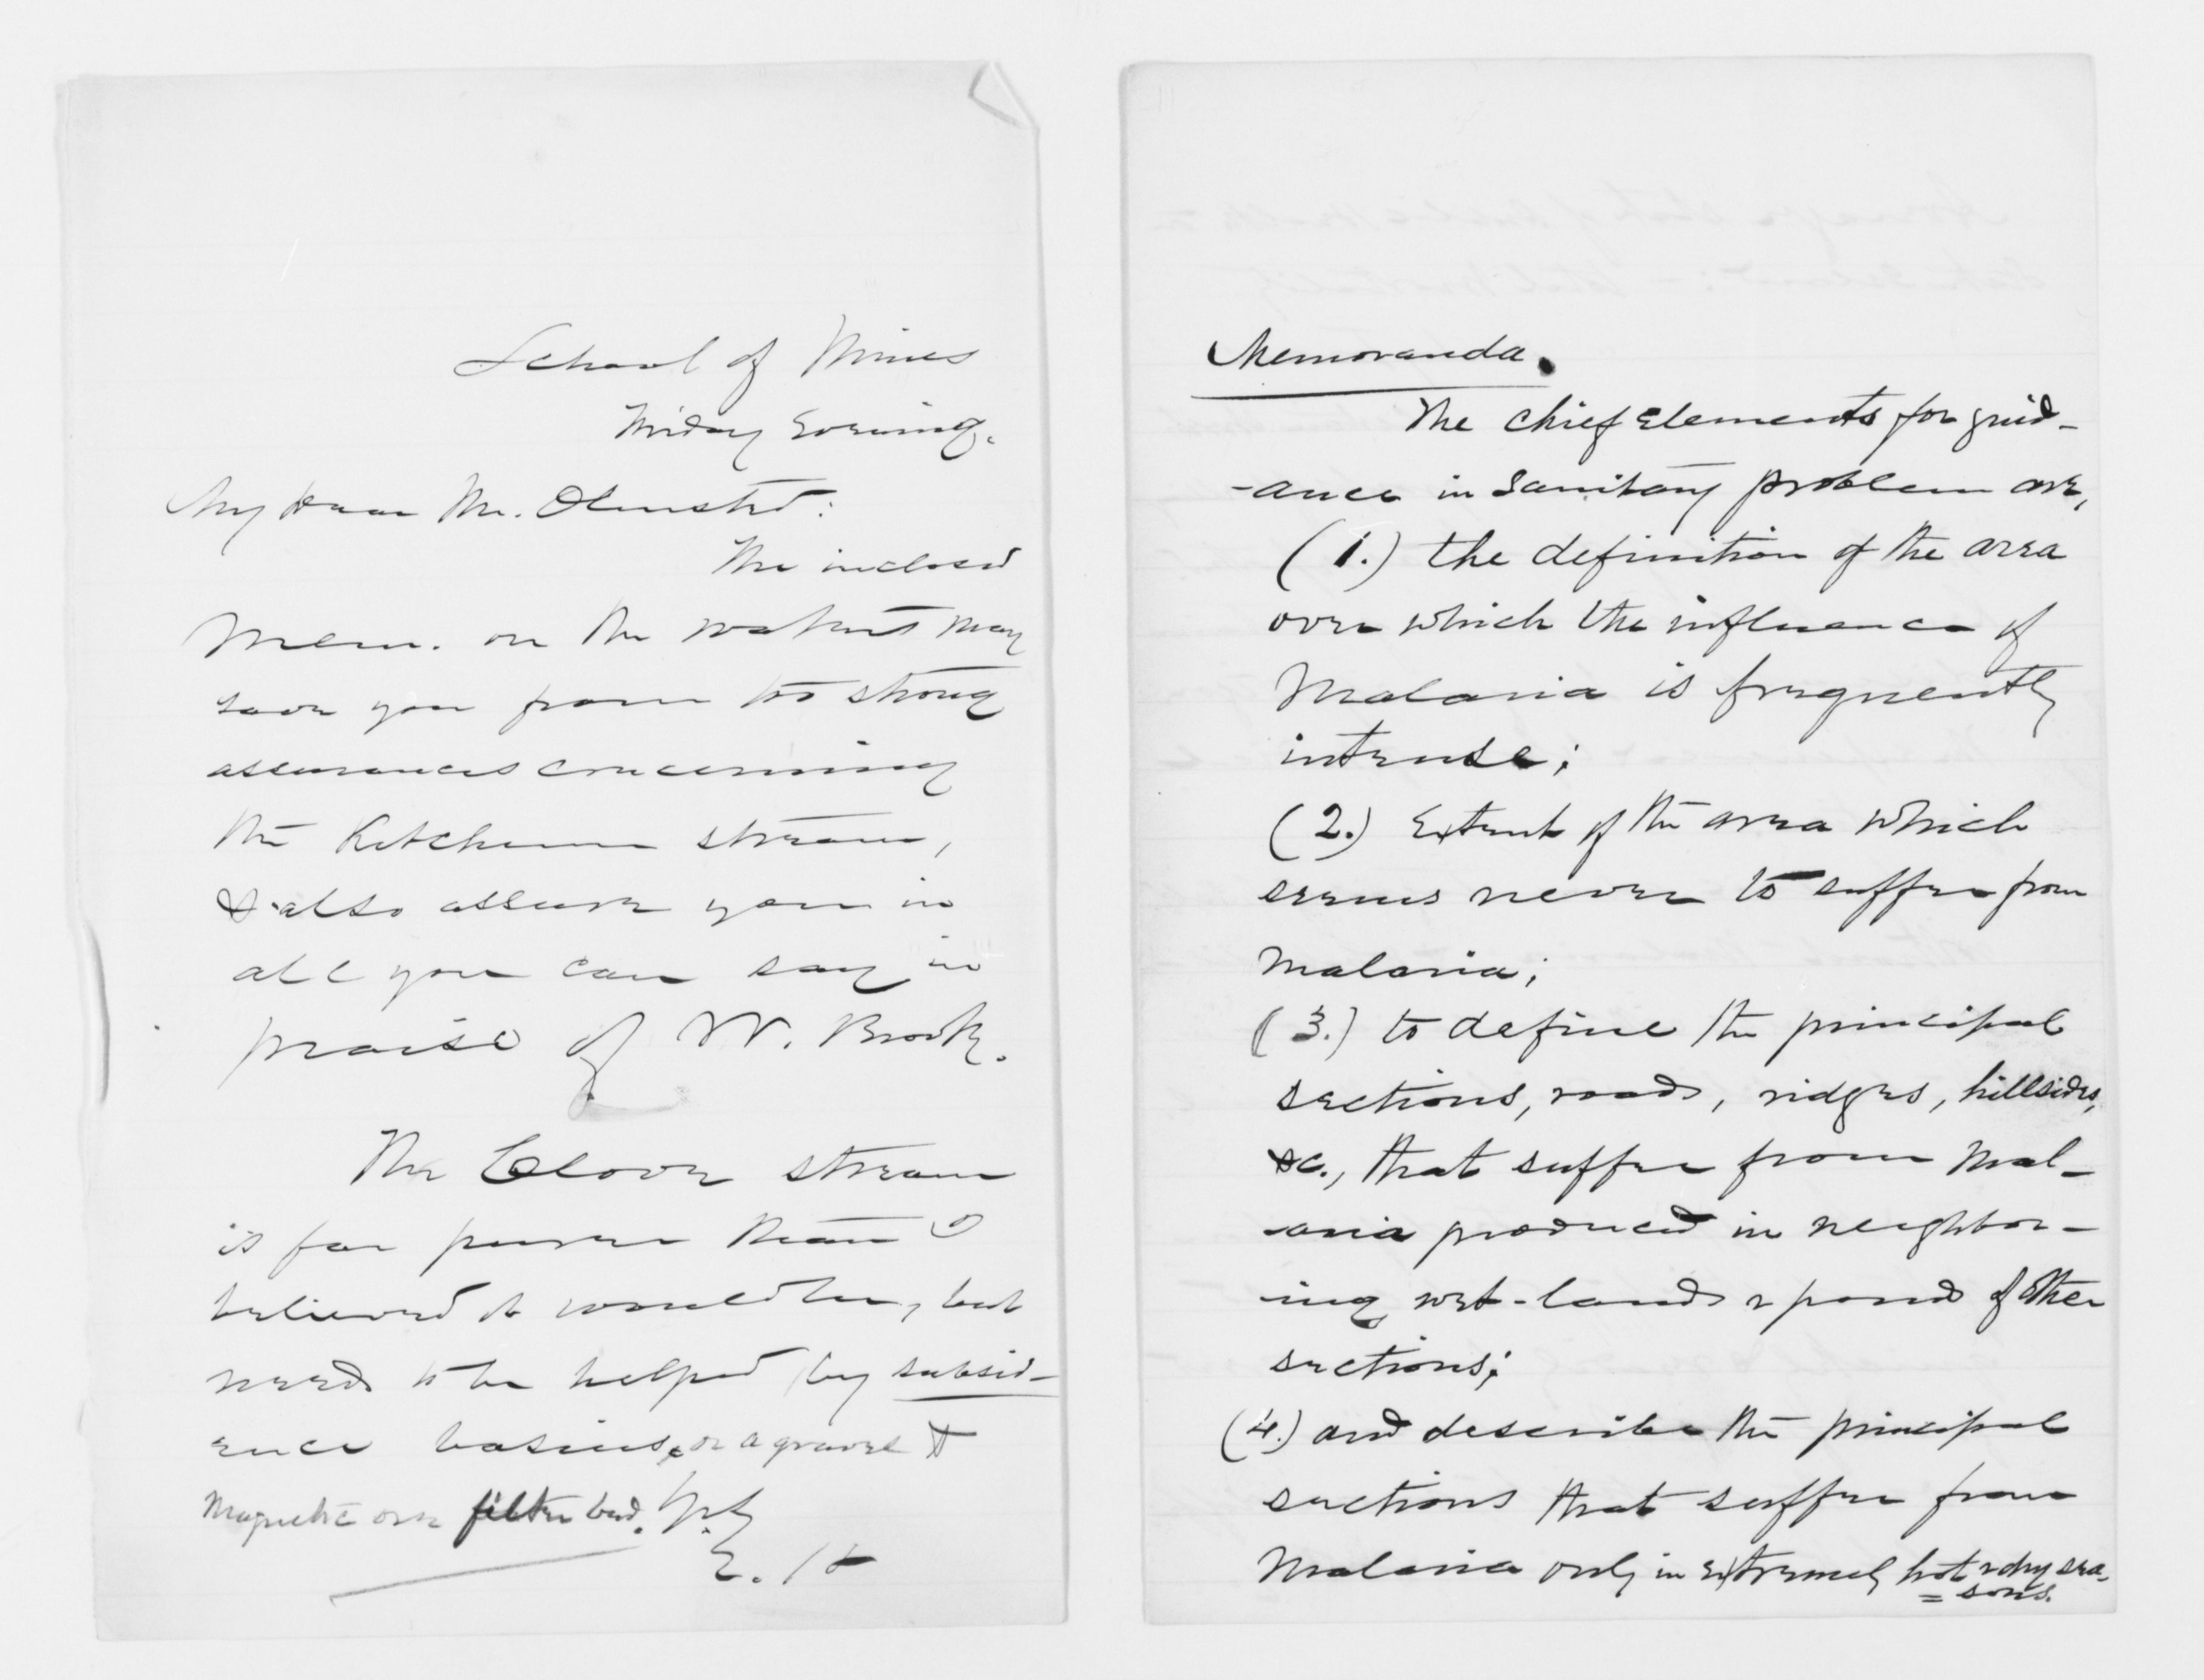 School of Mines
Friday Evening.
My Dear Mr. Olmsted:
The inclosed
Mem. on the waters may
save you from too strong
assurances concerning
the Ketchum stream,
& also assure you in
all you can say in
praise of W. Brook.
The Clove stream
is far purer than I
believed it would be, but
needs to be helped by subsid-
ence basins, or a gravel &
Magnetic ore filter bed.
E. H
Memoranda.
The chief elements for guid-
-ance in Sanitary problem are,
(1.) the definition of the area
over which the influence of
Malaria is frequently
intense;
(2.) Extent of the area which
seems never to suffer from
malaria;
(3.) to define the principal
sections, roads, ridges, hillsides,
&c., that suffer from mal-
-aria produced in neighbor-
-ing wet-lands & ponds of other
sections;
(4.) and describe the principal
sections that suffer from
Malaria only in extremely hot & dry sea-
= sons.